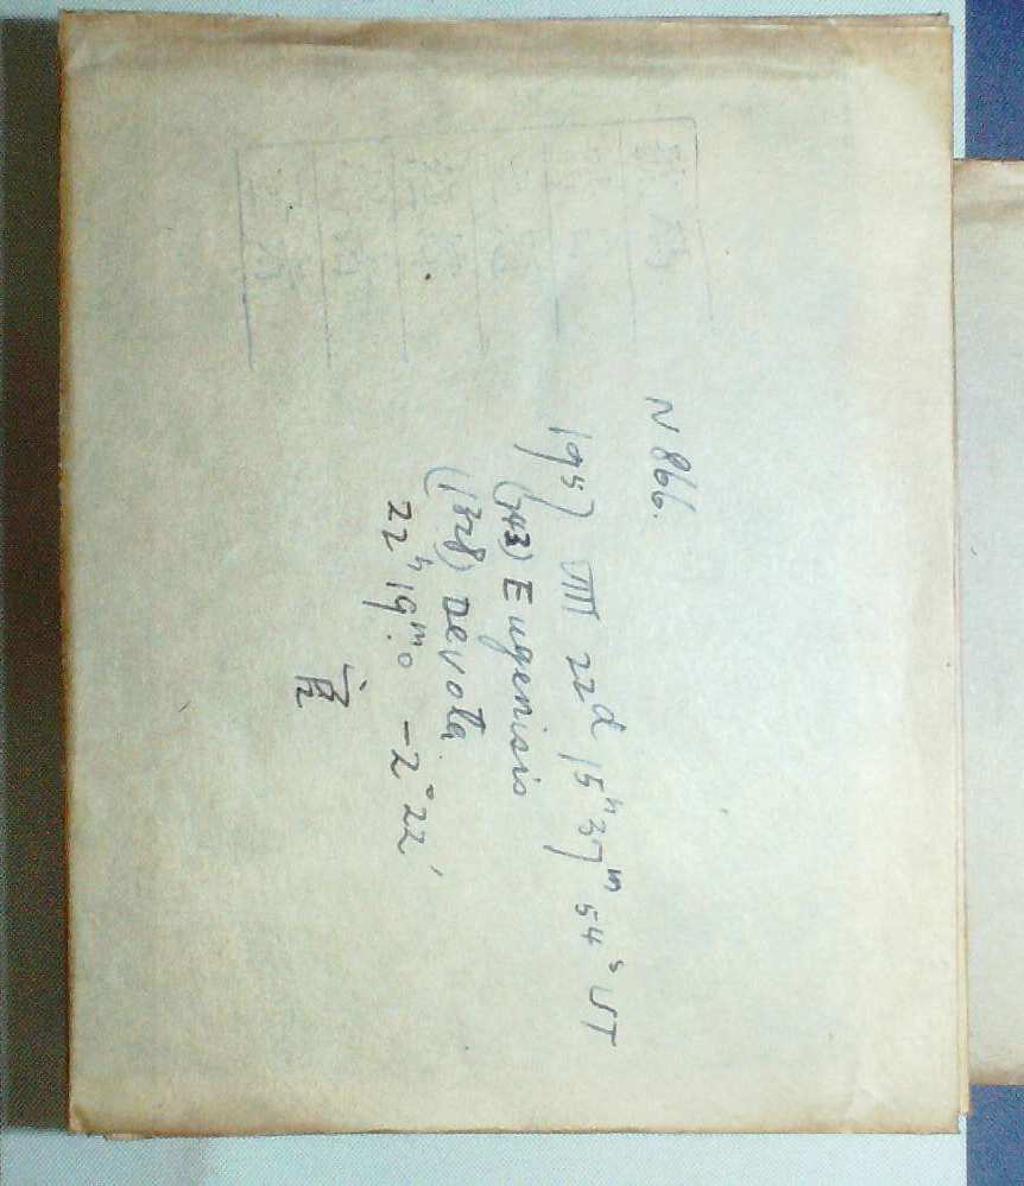 N 866.
1957 VIII 22d 15h37m 54s UT
(743) Eugenisis
(1328) Devota
22h19m.0 -2°22′